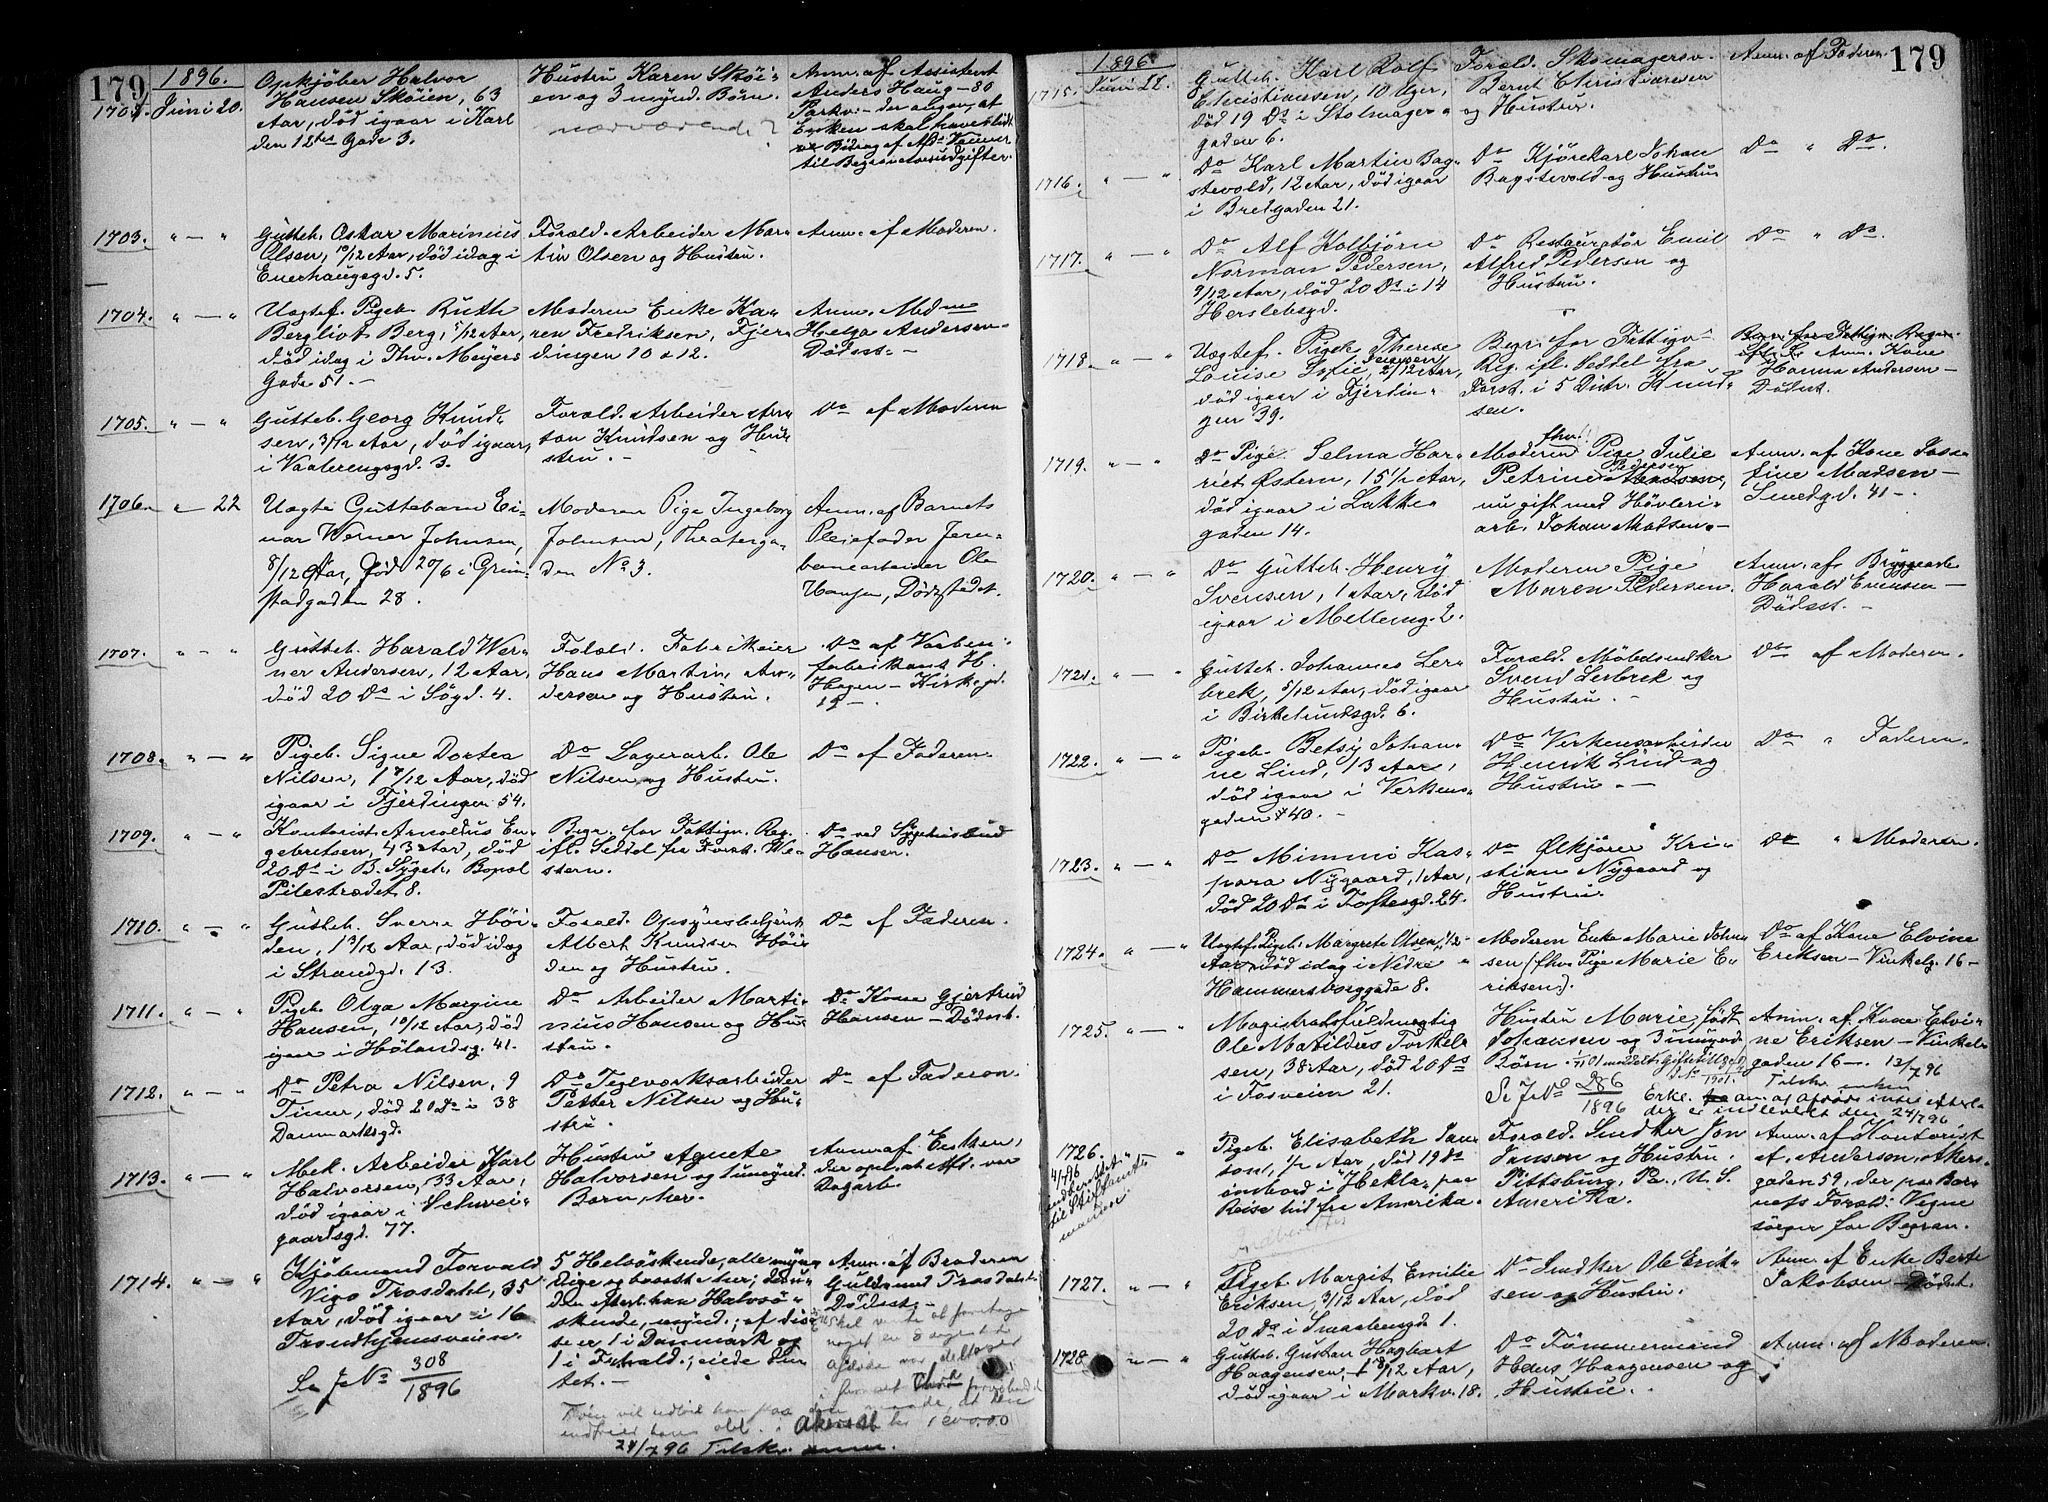 179
1896.
1702. Juni 20.
Opkjøber Halvor
Hansen Sköien, 63
Aar, död igaar i Karl
den 12tes Gade 3.
Hustru Karen Sköi-
en og 3 mynd. Børn.
nærværende?
Anm. af Assistent
Anders Haug - 80
Parkv. - der angav, at
Enken skal have lidt
Bidrag af
til Begravelsesudgifter.
1703. " — "
Gutteb. Oskar Marinius
Olsen, 10/12 Aar, död idag i
Enerhaugsgd. 5.
Foræld. Arbeider Mar-
tin Olsen og Hustru.
Anm. af Moderen.
1704. " — "
Uægtef. Pigeb. Ruth
Bergliot Berg, 5/12 Aar,
död idag i Thv. Meyers
Gade 51. —
Moderen Enke Ka-
ren Fredriksen, Fjer-
dingen 10 & 12.
Anm. Mdm
Helga Andersen -
Dödsst. -
1705. " — "
Gutteb. Georg Knud-
sen, 3/12 Aar, död igaar,
i Vaalerengsgd. 3.
Foræld. Arbeider
Knudsen og Hu-
stru. -
Do af Moderen
1706. " 22
Uægte Guttebarn Ei-
nar Werner Johnsen,
8/12 Aar, død 20/6 i Grim-
stadgaden 28.
Moderen Pige Ingeborg
Johnsen, Theaterga-
den No 3.
Anm. af Barnets
Pleiefader Jern-
banearbeider Ole
Hansen, Dødsstedet.
1707. " — "
Gutteb. Harald Wer-
ner Andersen, 12 Aar,
död 20 Ds i Søgd. 4.
Foræld. Fabrikeier
Hans Martin An-
dersen og Hustru.
Do af
fabrikant H.
Hagen - Kirkegd.
19 -.
1708. " — "
Pigeb. Signe Dortea
Nilsen, 1 7/12 Aar, död
igaar i Fjerdingen 54.
Do Lagerarb. Ole
Nilsen og Hustru.
Do af Faderen.
1709. " — "
Kontorist Arnoldus En-
gebretsen, 43 Aar, död
20 Ds i B. Sygeh. Bopæl
Pilestrædet 8.
Begr. for Fattigv. Reg.
ifl. Seddel fra Forst. We-
stern.
Do ved Sygehusbud
Hansen.
1710. " — "
Gutteb. Sverre Höi-
den, 1 3/12 Aar, död idag
i Strandgd. 13.
Foræld. Opsynsbetjent
Albert Knudsen Höi-
den og Hustru.
Do af Faderen.
1711. " — "
Pigeb. Olga Margine
Hansen, 10/12 Aar, död
igaar i Hölandsg. 41.
Do Arbeider Marti-
nius Hansen og Hu-
stru.
Do Kone Gjertrud
Hansen - Dödsst.
1712. " — "
Do Petra Nilsen, 9
Timer, död 20 Ds i 38
Danmarksgd.
Do Teglverksarbeider
Petter Nilsen og Hu-
stru.
Do af Faderen.
1713. " — "
Mek. Arbeider Karl
Halvorsen, 33 Aar,
död igaar i Schwei-
gaardsgd. 77.
Hustru Agnete
Halvorsen og umynd.
Barn, her.
Anm. af Enken,
der opg. at Afd. var
Dagarb.
1714. " — "
Kjöbmand Torvald
Vigo Trosdahl, 35
Aar, död igaar i 16
Trondhjemsveien.
Se J No 308/1896
5 Helsöskende, alle myn-
dige og bosatte her; desu-
den efterl. han Halvsö-
skende, mynd.; af dis-
se er 1 i Danmark og
1 i Fr.hald.; eiede In-
tet. -
Anm. af Broderen
Guldsmed Trosdahl -
Dödsst. -
Akersst. kr 1200.00
24/7 96 Tilsk. anm.
179
1896.
1715. Juni 22.
Gutteb. Karl Rolf
Christiansen, 10 Uger,
död 19 Ds i Stolmager-
gaden 6.
Foræld. Skomagersv.
Bernt Christiansen
og Hustru.
Anm. af Faderen.
1716. " — "
Do Karl Martin Bag-
stevold, 12 Aar, död igaar
i Bredgaden 21.
Do Kjörekarl Johan
Bagstevold og Hustru
Do " Do.
1717. " — "
Do Alf Kolbjörn
Norman Pedersen,
9/12 Aar, död 20 Ds i 14
Herslebsgd.
Do Restauratör Emil
Alfred Pedersen og
Hustru.
Do " Do.
1718. " — "
Uægtef. Pigeb. Therese
Louise Sofie Jensen, 2/12 Aar,
död igaar i Fjerdin-
gen 39.
Begr. for Fattigv.
Reg. ifl. Seddel fra
Forst. i 5 Distr. Knud-
sen.
Anm. Kone
Hanna Andersen -
Dödsst.
1719. " — "
Do Pige Selma Har-
riet Østern, 15 1/2 Aar,
död igaar i Lakke-
gaden 14.
Moderen fhv. Pige Julie
Petrine Pedersen,
nu gift med Hövleri-
arb. Johan Madsen. -
Anm. af Kone Jose-
fine Madsen -
Smedgd. 41 -.
1720. " — "
Do Gutteb. Henry
Svensen, 1 Aar, död
igaar i Mellemg. 2.
Moderen Pige
Maren Pedersen.
Anm. af Bryggearb.
Harald Evensen -
Dödsst. -
1721. " — "
Gutteb. Johannes Ler-
brek, 5/12 Aar, död igaar
i Birkelundsgd. 6.
Foræld. Möbelsnedker
Svend Lerbrek og
Hustru. -
Do af Moderen.
1722. " — "
Pigeb. Betsy Johan-
ne Lind, 13 Aar,
död igaar i Verkens-
gaden 40. -
Do Verkensarbeider
Henrik Lind og
Hustru. -
Do " Faderen.
1723. " — "
Do Mimmi Kas-
para Nygaard, 1 Aar,
död 20 Ds i Toftesgd. 24.
Do Ølkjörer Kri-
stian Nygaard og
Hustru.
Do " Moderen.
1724. " — "
Uægtef. Pigeb. Margrete Olsen, 1/2
Aar, död idag i Nedre
Hammersborggade 8.
Moderen Enke Marie John-
sen (fhv. Pige Marie E-
riksen).
Do af Kone Elvine
Eriksen - Vinkelg. 16 -
1725. " — "
Magistratsfuldmægtig
Ole Matildus Torkel-
sen, 38 Aar, död 20 Ds
i Fosveien 21.
Hustru Marie, født
Johansen og 3 umynd.
Børn.
Se J No 286/1896
Anm. af Kone Elvi-
ne Eriksen - Vinkel-
gaden 16 -. 13/7 96
Tilsk. enken
Erkl. an. af Afdøde intet Efterl.
der er indleveret den 24/7 96
1726. "
Pigeb. Elisabeth Jan-
son, 1/2 Aar, död 19 Ds
ombord i "Hekla" paa
Reise hid fra Amerika.
4/7 96
indberettet
til Skifteamts
manden
Foræld. Snedker Jon
Janson og Hustru,
Pittsburg, Pa., U. S.
Amerika.
Anm. af Kontorist
Andersen, Akers-
gaden 59, der paa Bar-
nets Foræld. Vegne
sörger for Begrav.
1727. " — "
Pigeb. Margit Emilie
Eriksen, 3/12 Aar, död
20 Ds i Smaabergd. 1.
Do Snedker Ole Erik-
sen og Hustru.
Anm. af Enke Berte
Jakobsen - Dödsst.
1728. " — "
Gutteb. Gustav Hagbart
Haagensen, 1 8/12 Aar,
död igaar i Markv. 18.
Do Tömmermand
Hans Haagensen og
Hustru. -
Anm. af Moderen.